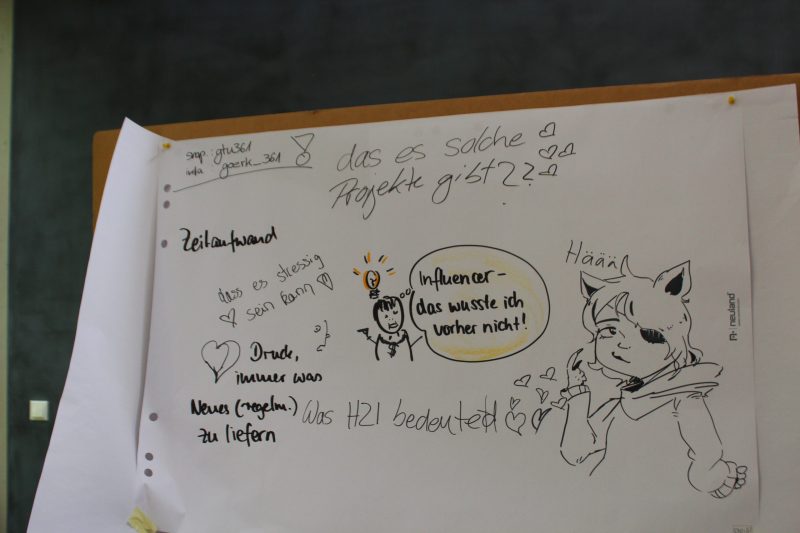 snap: gtu361
insta: goerk_361
das es solche
Projekte gibt??
Zeitaufwand
dass es stressig
sein kann
Influencer-
das wusste ich
vorher nicht!
Häää
Druck,
immer was
Neues (regelm.)
zu liefern
Was HZI bedeuted
neuland